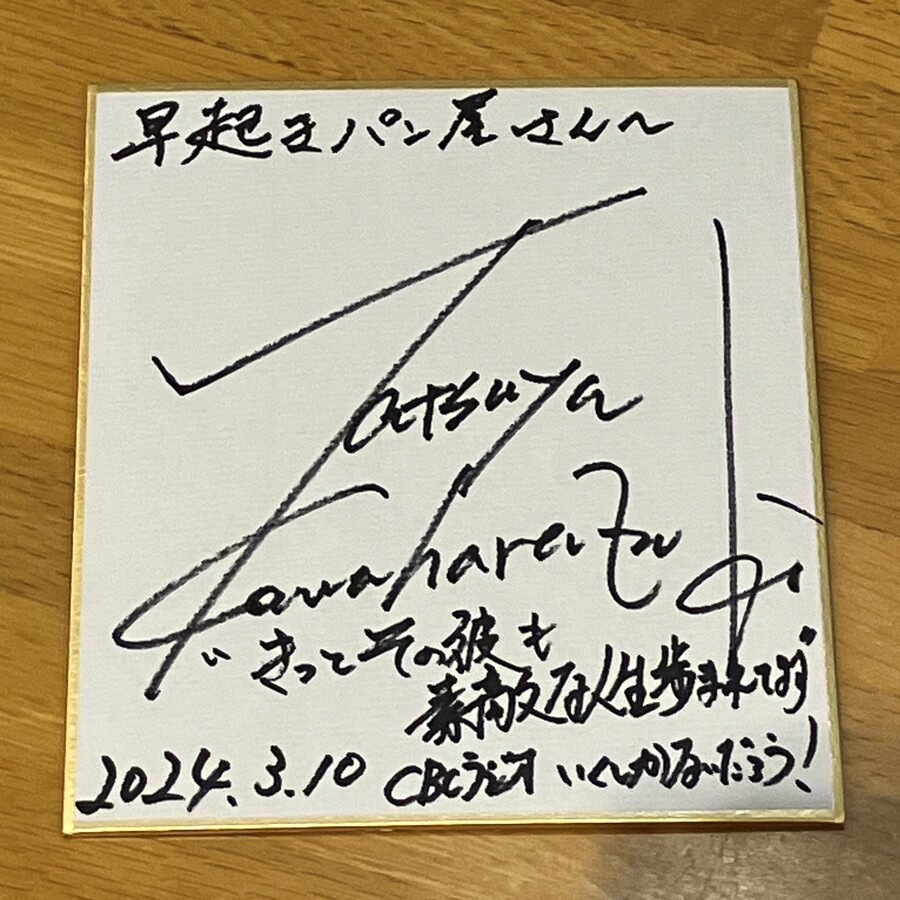 早起きパン屋さんへ
Tatsuya
Kawaharazu
"きっとその彼も
素敵な人生歩まれてます"
2024.3.10 CBCラジオ いくしかないだろう!